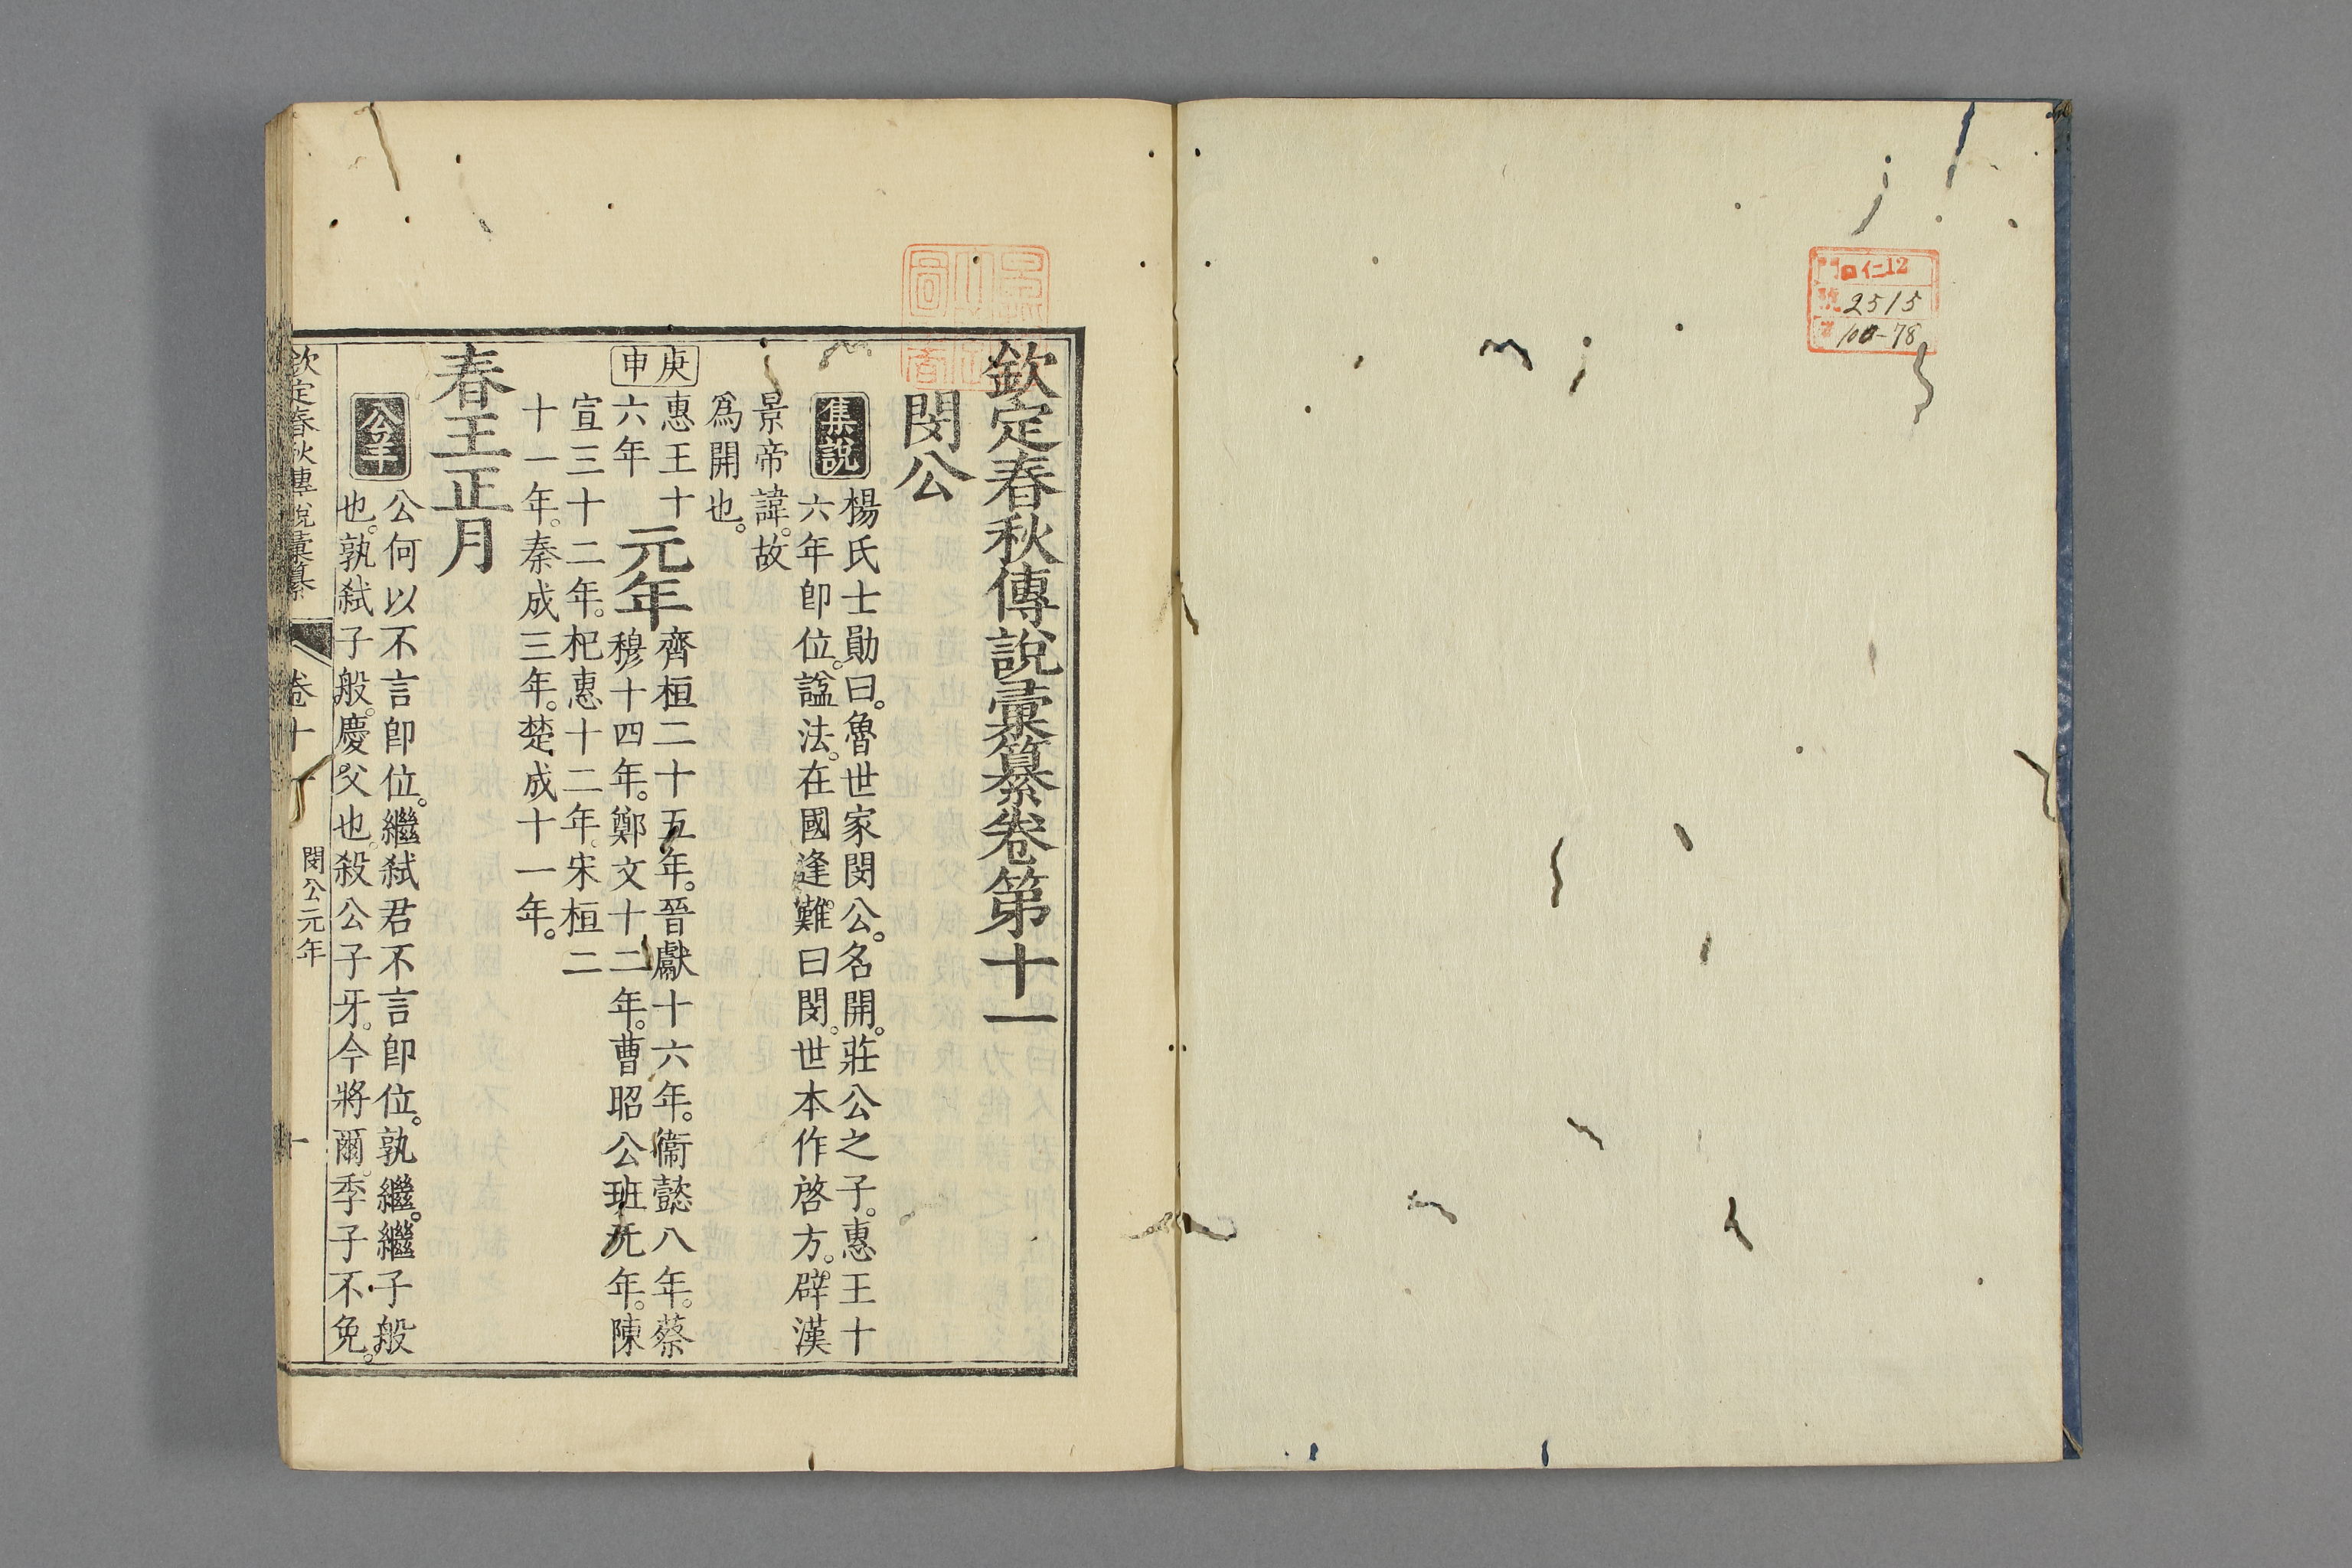 門 ロ仁12
號 2515
100-78
欽定春秋傳說彙纂卷第十一
閔公
集說
楊氏士勛曰。魯世家閔公。名開。莊公之子。惠王十
六年卽位。諡法。在國逢難曰閔。世本作啓方。辟漢
景帝諱。故
爲開也。
庚申
惠王十
六年
元年
齊桓二十五年。晉獻十六年。衞懿八年。蔡
穆十四年。鄭文十二年。曹昭公班元年。陳
宣三十二年。杞惠十二年。宋桓二
十一年。秦成三年。楚成十一年。
春王正月
公羊
公何以不言卽位。繼弑君不言卽位。孰繼。繼子般
也。孰弑子般。慶父也。殺公子牙。今將爾。季子不免。
欽定春秋傳說彙纂
卷十一
閔公元年
一